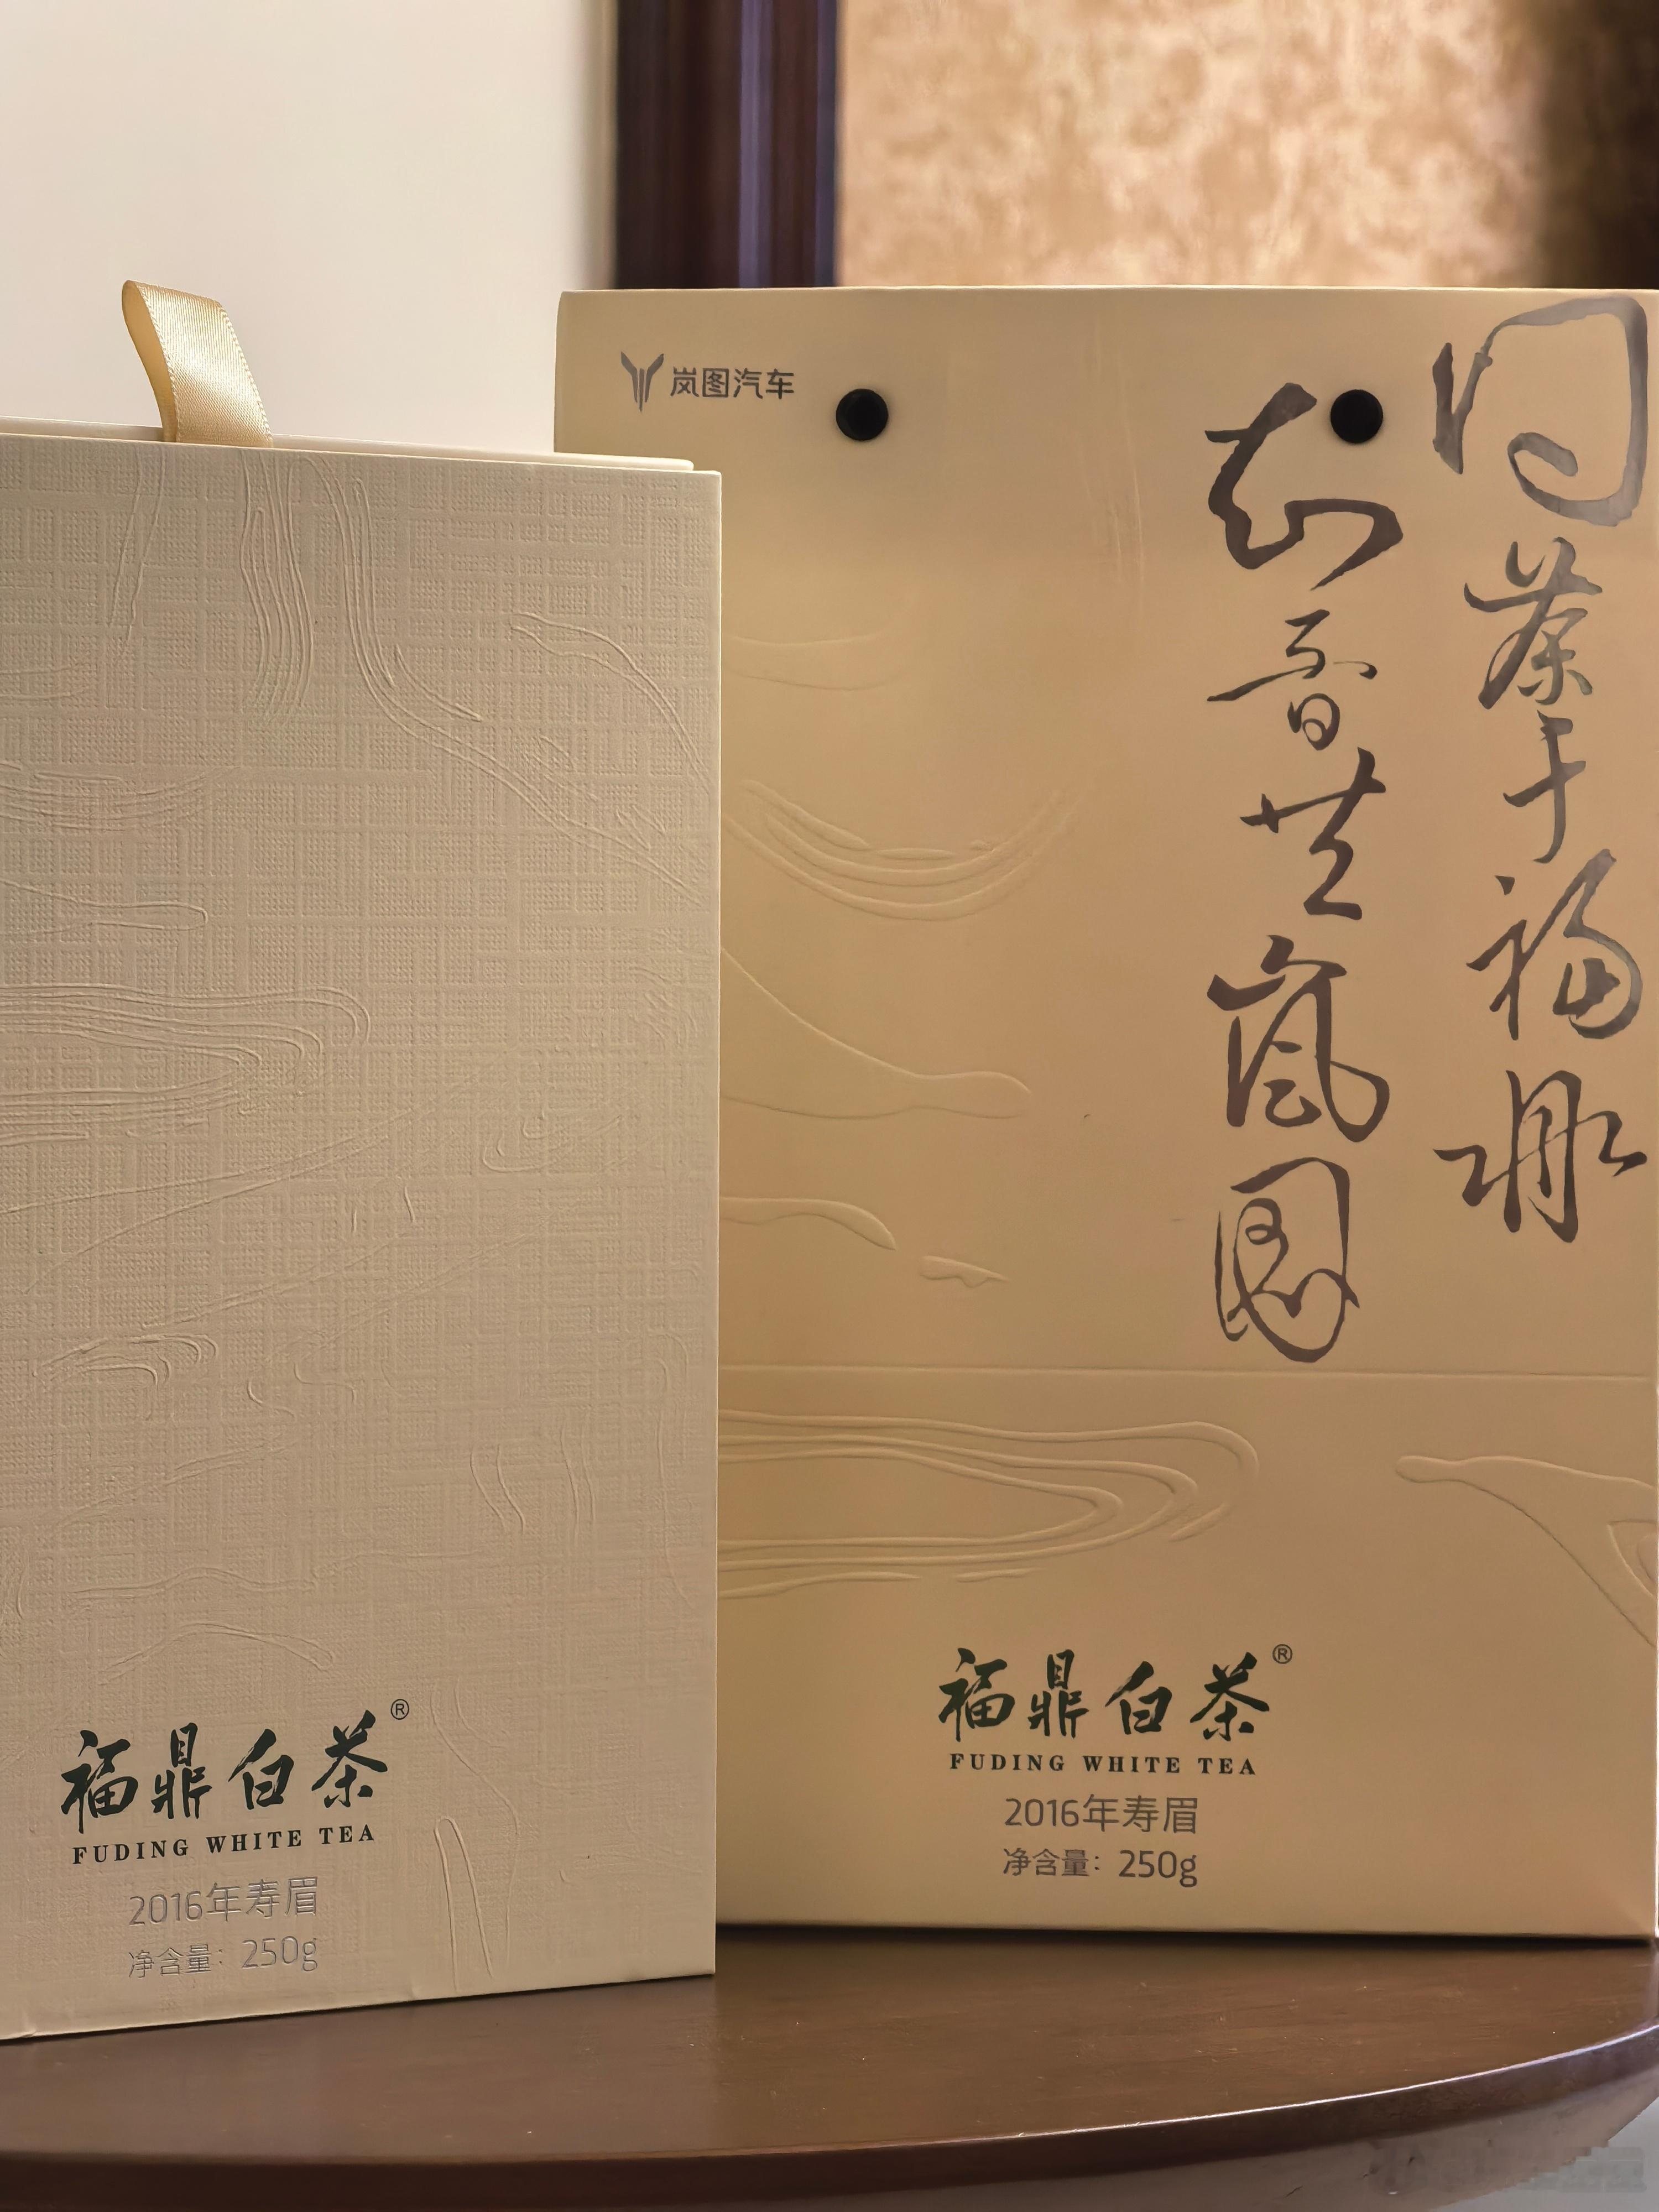 岚图汽车
问茶于福鼎
知音嵐图
福鼎白茶®
FUDING WHITE TEA
2016年寿眉
净含量：250g
福鼎白茶®
FUDING WHITE TEA
2016年寿眉
净含量：250g